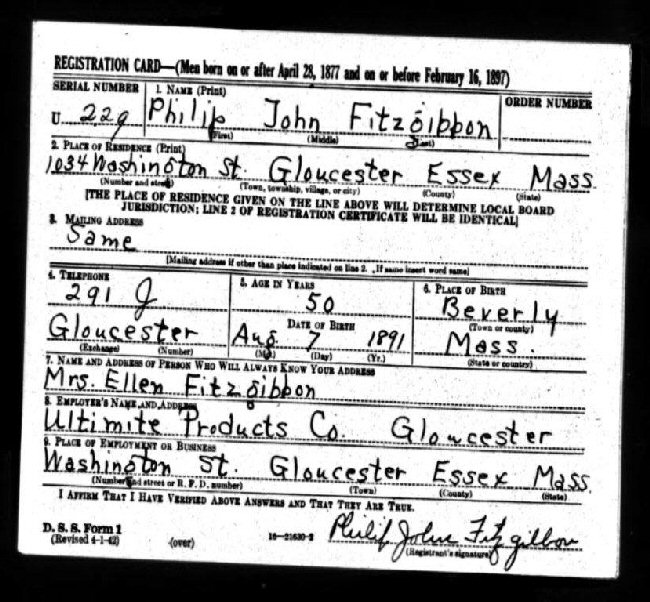 REGISTRATION CARD—(Men born on or after April 28, 1877 and on or before February 16, 1897)
SERIAL NUMBER 1. NAME (Print) ORDER NUMBER
U 229 Philip John Fitzgibbon
(First) (Middle) (Last)
2. PLACE OF RESIDENCE (Print)
1034 Washington St. Gloucester Essex Mass.
(Number and street) (Town, township, village, or city) (County) (State)
[THE PLACE OF RESIDENCE GIVEN ON THE LINE ABOVE WILL DETERMINE LOCAL BOARD
JURISDICTION; LINE 2 OF REGISTRATION CERTIFICATE WILL BE IDENTICAL]
3. MAILING ADDRESS
Same
[Mailing address if other than place indicated on line 2. If same insert word same]
4. TELEPHONE 5. AGE IN YEARS 6. PLACE OF BIRTH
291 J 50 Beverly
DATE OF BIRTH (Town or county)
Gloucester Aug 7 1891 Mass.
(Exchange) (Number) (Mo.) (Day) (Yr.) (State or country)
7. NAME AND ADDRESS OF PERSON WHO WILL ALWAYS KNOW YOUR ADDRESS
Mrs. Ellen Fitzgibbon
8. EMPLOYER'S NAME AND ADDRESS
Ultimite Products Co. Gloucester
9. PLACE OF EMPLOYMENT OR BUSINESS
Washington St. Gloucester Essex Mass.
(Number and street or R. F. D. number) (Town) (County) (State)
I AFFIRM THAT I HAVE VERIFIED ABOVE ANSWERS AND THAT THEY ARE TRUE.
D. S. S. Form 1
(Revised 4-1-42) (over) 16—21630-2 Philip John Fitzgibbon
(Registrant's signature)